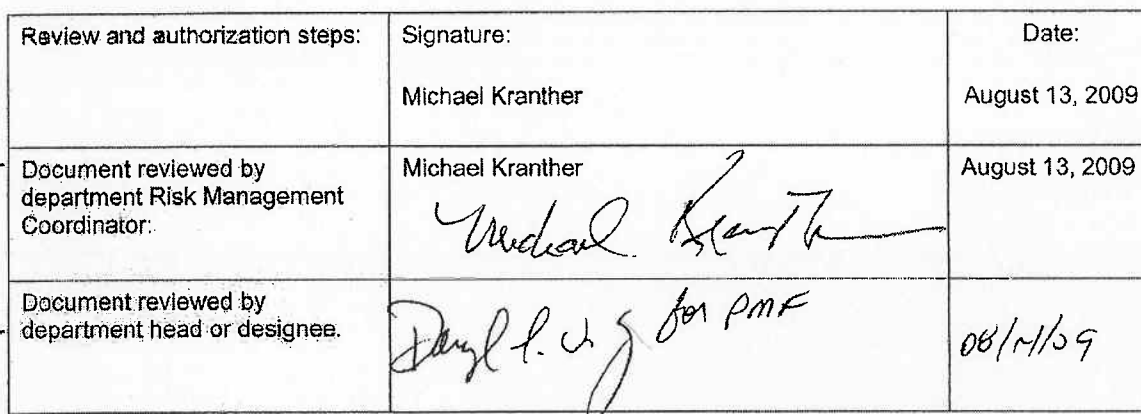 Review and authorization steps:
Signature:
Date:
Michael Kranther
August 13, 2009
Document reviewed by
department Risk Management
Coordinator:
Michael Kranther
August 13, 2009
Michael Kranther
Document reviewed by
department head or designee.
Daryl L. for PMF